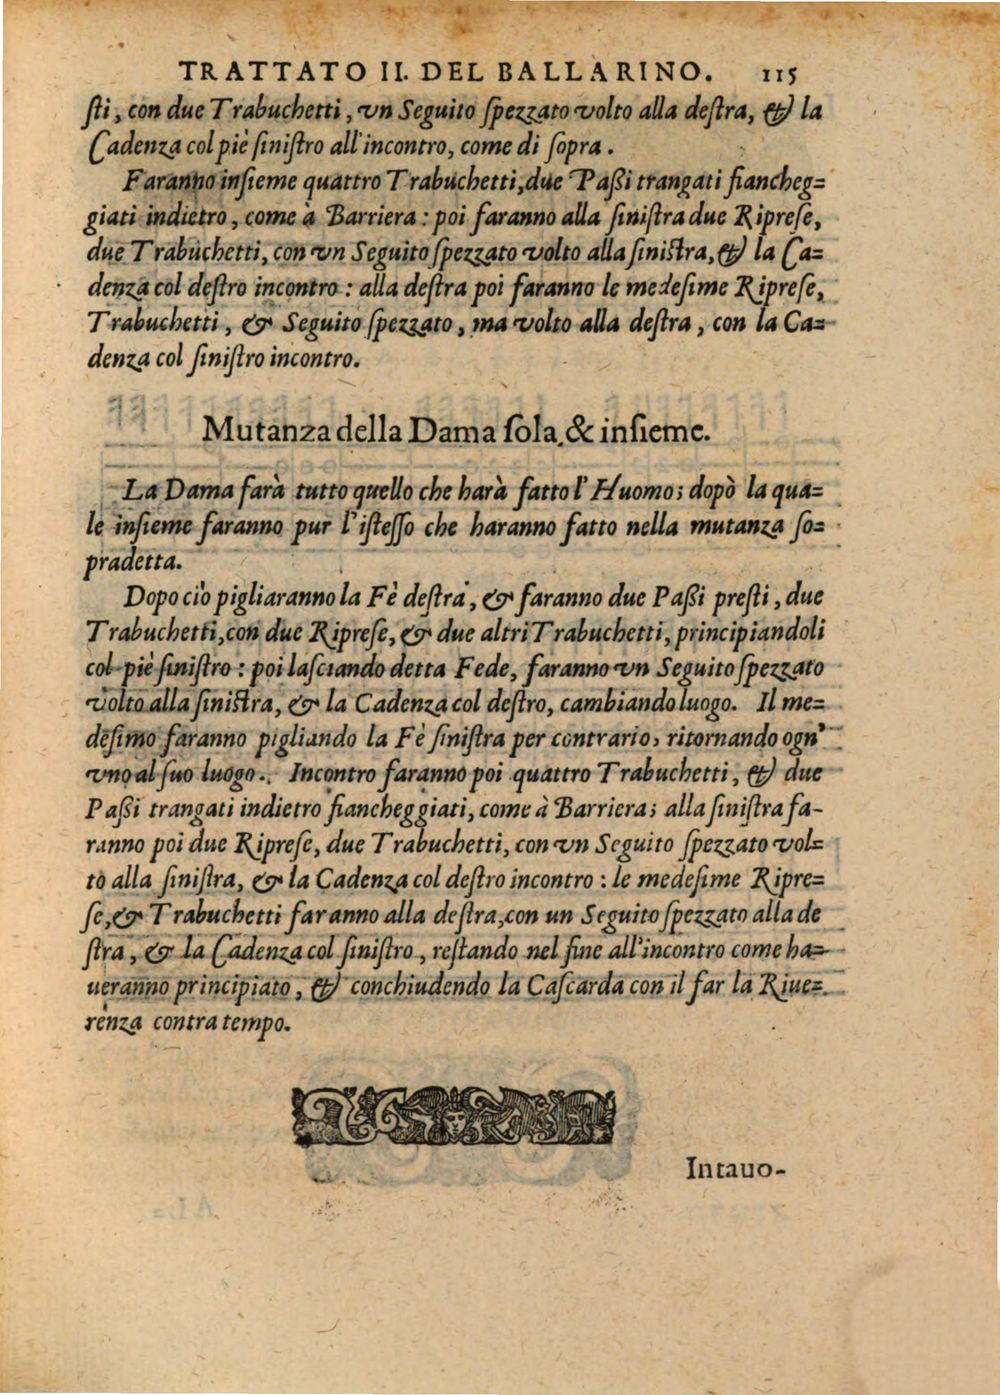 TRATTATO II. DEL BALLARINO. 115
ſti, con due Trabuchetti, vn Seguito ſpezzato volto alla deſtra, & la
Cadenza col piè ſiniſtro all'incontro, come di ſopra.
Faranno inſieme quattro Trabuchetti, due Paßi trangati fiancheg=
giati indietro, come à Barriera: poi faranno alla ſiniſtra due Ripreſe,
due Trabuchetti, con vn Seguito ſpezzato volto alla ſiniſtra, & la Ca=
denza col deſtro incontro: alla deſtra poi faranno le medeſime Ripreſe,
Trabuchetti, & Seguito ſpezzato, ma volto alla deſtra, con la Ca=
denza col ſiniſtro incontro.
Mutanza della Dama ſola, & inſieme.
La Dama farà tutto quello che harà fatto l'Huomo; dopò la qua=
le inſieme faranno pur l'iſteſſo che haranno fatto nella mutanza ſo=
pradetta.
Dopo ciò pigliaranno la Fè deſtra, & faranno due Paßi preſti, due
Trabuchetti, con due Ripreſe, & due altri Trabuchetti, principiandoli
col piè ſiniſtro: poi laſciando detta Fede, faranno vn Seguito ſpezzato
volto alla ſiniſtra, & la Cadenza col deſtro, cambiando luogo. Il me=
deſimo faranno pigliando la Fè ſiniſtra per contrario, ritornando ogn'
vno al ſuo luogo. Incontro faranno poi quattro Trabuchetti, & due
Paßi trangati indietro fiancheggiati, come à Barriera; alla ſiniſtra fa-
ranno poi due Ripreſe, due Trabuchetti, con vn Seguito ſpezzato vol=
to alla ſiniſtra, & la Cadenza col deſtro incontro: le medeſime Ripre=
ſe, & Trabuchetti faranno alla deſtra, con un Seguito ſpezzato alla de
ſtra, & la Cadenza col ſiniſtro, reſtando nel fine all'incontro come ha=
ueranno principiato, & conchiudendo la Caſcarda con il far la Riue=
renza contra tempo.
Intauo-